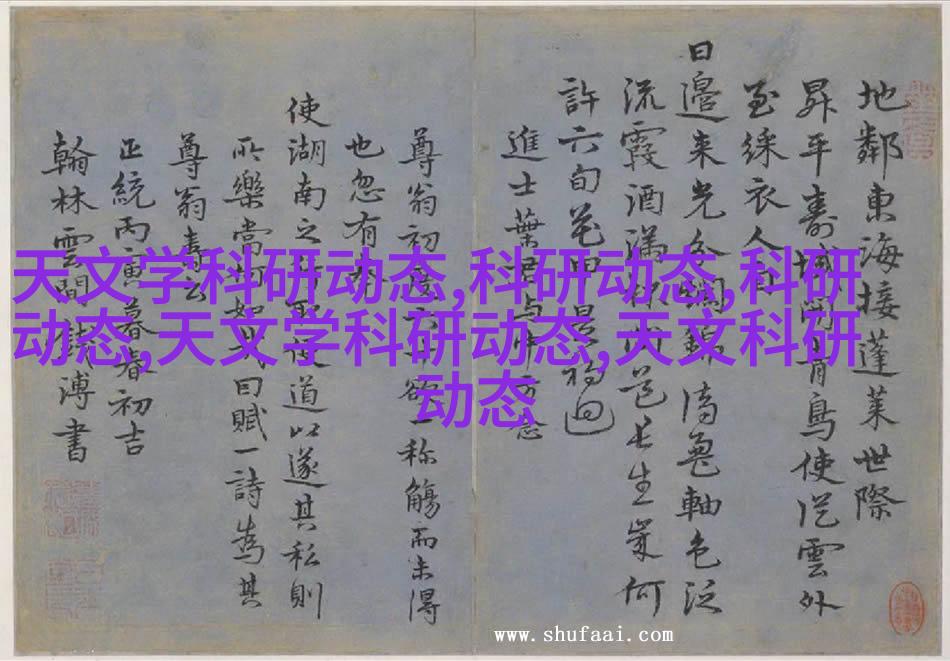 天文学科研动态,科研动态,科研
动态,天文学科研动态,天文科研
动态
地鄰東海接蓬萊世際
昇平壽域開青鳥使從雲外
至綵衣人自
日邊來光分 色泛
流霞酒滿 道長生策何
許六旬花甲是初迴
進士葉 與中
尊翁初度 欲一称觴而未得
也忽有奉
使湖南之行 便道以遂其私則
所樂當何如 因賦一詩為其
尊翁壽云
正統丙寅暮春初吉
翰林雲間 溥書
www.shufaai.com